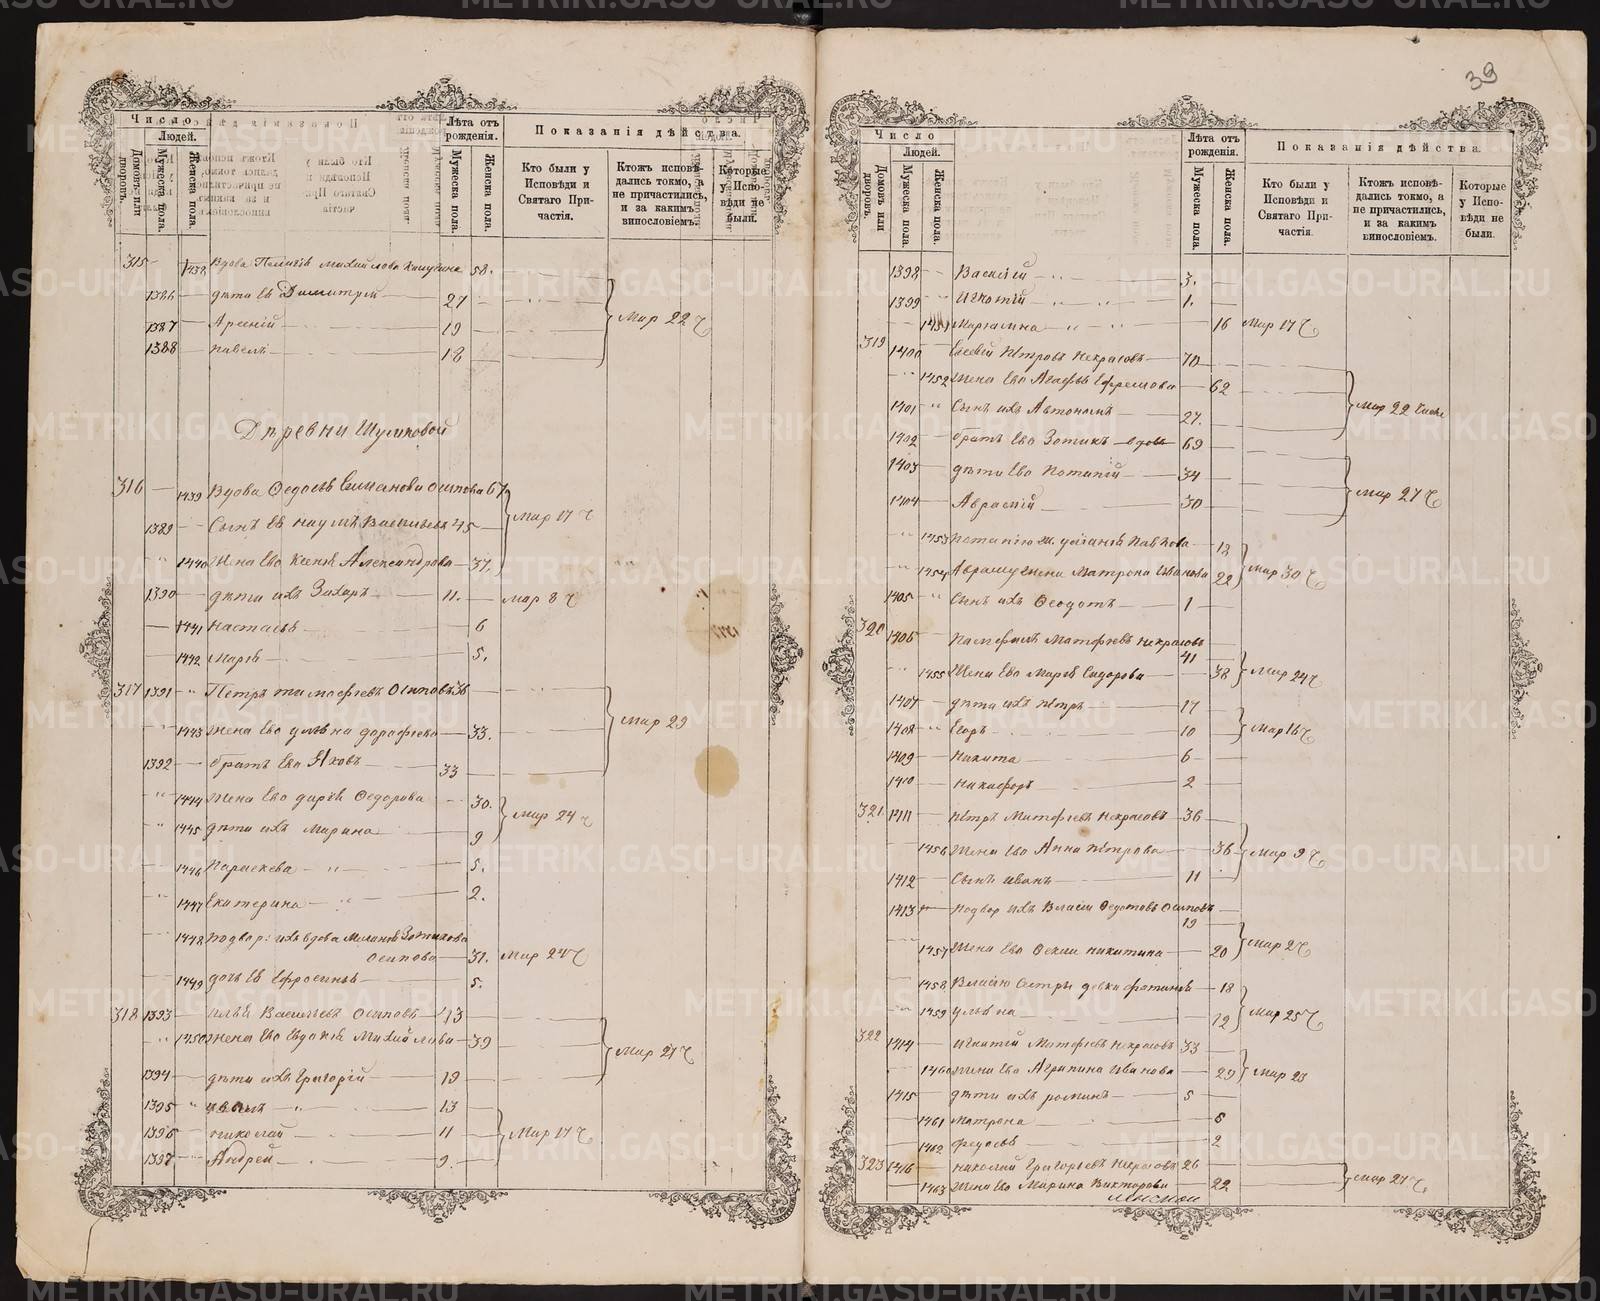 Число
Людей.
Домовъ или дворовъ.
Мужеска пола.
Женска пола.
Лѣта отъ рожденія.
Мужеска пола.
Женска пола.
Показанія дѣйства.
Кто были у Исповѣди и Святаго Причастія.
Ктожъ исповѣдались токмо, а не причастились, и за какимъ винословіемъ.
Которые у Исповѣди не были.
315 1438 Вдова Михайлова 58.
1386 дѣти ея Димитрий 27
1387 Арсений 19
Мар 22
1388 Павелъ 18
Деревни Шуликовой
316 1439 Вдова Федосья Осипова 67
1389 Сынъ ея Наумъ Васильевъ 45
Мар 17
1440 Жена Ево Ксенья Александрова 37.
1390 дѣти ихъ Захаръ 11. Мар 8
1441 Настасья 6
1442 Марья 5.
317 1391 Петръ Тимофѣевъ Осиповъ 36
1443 жена Ево Ульяна 33.
Мар 29
1392 братъ Ево Яковъ 33
1444 Жена Ево Дарья Федорова 30.
Мар 24
1445 дѣти ихъ Марина 9
1446 Параскева 5.
1447 Екатерина 2.
1448 вдова Зотикова
Осипова 31. Мар 24
1449 дочь ея Ефросинья 5.
318 1393 Илья Васильевъ Осиповъ 43
1450 Жена Ево Евдокія Михайлова 39
Мар 27
1394 дѣти ихъ Григорій 19
1395 13
1396 Николай 11
Мар 17
1397 Андрей 9.
39
Число
Людей.
Домовъ или дворовъ.
Мужеска пола.
Женска пола.
Лѣта отъ рожденія.
Мужеска пола.
Женска пола.
Показанія дѣйства.
Кто были у Исповѣди и Святаго Причастія.
Ктожъ исповѣдались токмо, а не причастились, и за какимъ винословіемъ.
Которые у Исповѣди не были.
1398 Василій 3.
1399 Игнатій 1.
1451 16 Мар 17
319 1400 Петровъ Некрасовъ 70
1452 Жена Ево Агафья Ефремова 62
Мар 22
1401 Сынъ ихъ Автономъ 27.
1402 братъ Ево Зотикъ вдов 69
1403 дѣти Ево Потапій 34
Мар 27
1404 Аврамій 30
1453 Потапію ж. Павлова
1454 Авраму жена Матрона Иванова 22
Мар 30
1405 Сынъ ихъ Феодотъ 1
320 1406 Памфилъ Матфѣевъ Некрасовъ
41
1455 Жена Ево Марья Сидорова 38
Мар 24
1407 дѣти ихъ Петръ 17
1408 Егоръ 10
Мар 16
1409 Никита 6
1410 Никифоръ 2
321 1411 Петръ Матфѣевъ Некрасовъ 36
1456 Жена Ево Анна Петрова 36
Мар 9
1412 Сынъ Иванъ 11
1413 Подвор ихъ Власій Федотовъ Осиповъ
19
1457 Жена Ево Фекла Никитина 20
Мар 2
1458 Власію Сестры девки Фотинья 18
1459 Ульяна 12
Мар 25
322 1414 Игнатій Матфѣевъ Некрасовъ 33
1460 Жена Ево Агрипина Иванова 29
Мар 23
1415 дѣти ихъ Романъ 5
1461 Матрона
1462 Федосья 2
323 1416 Николай Григорьевъ Некрасовъ 26
1463 Жена Ево Марина Викторова 22
Мар 27
METRIKI.GASO-URAL.RU